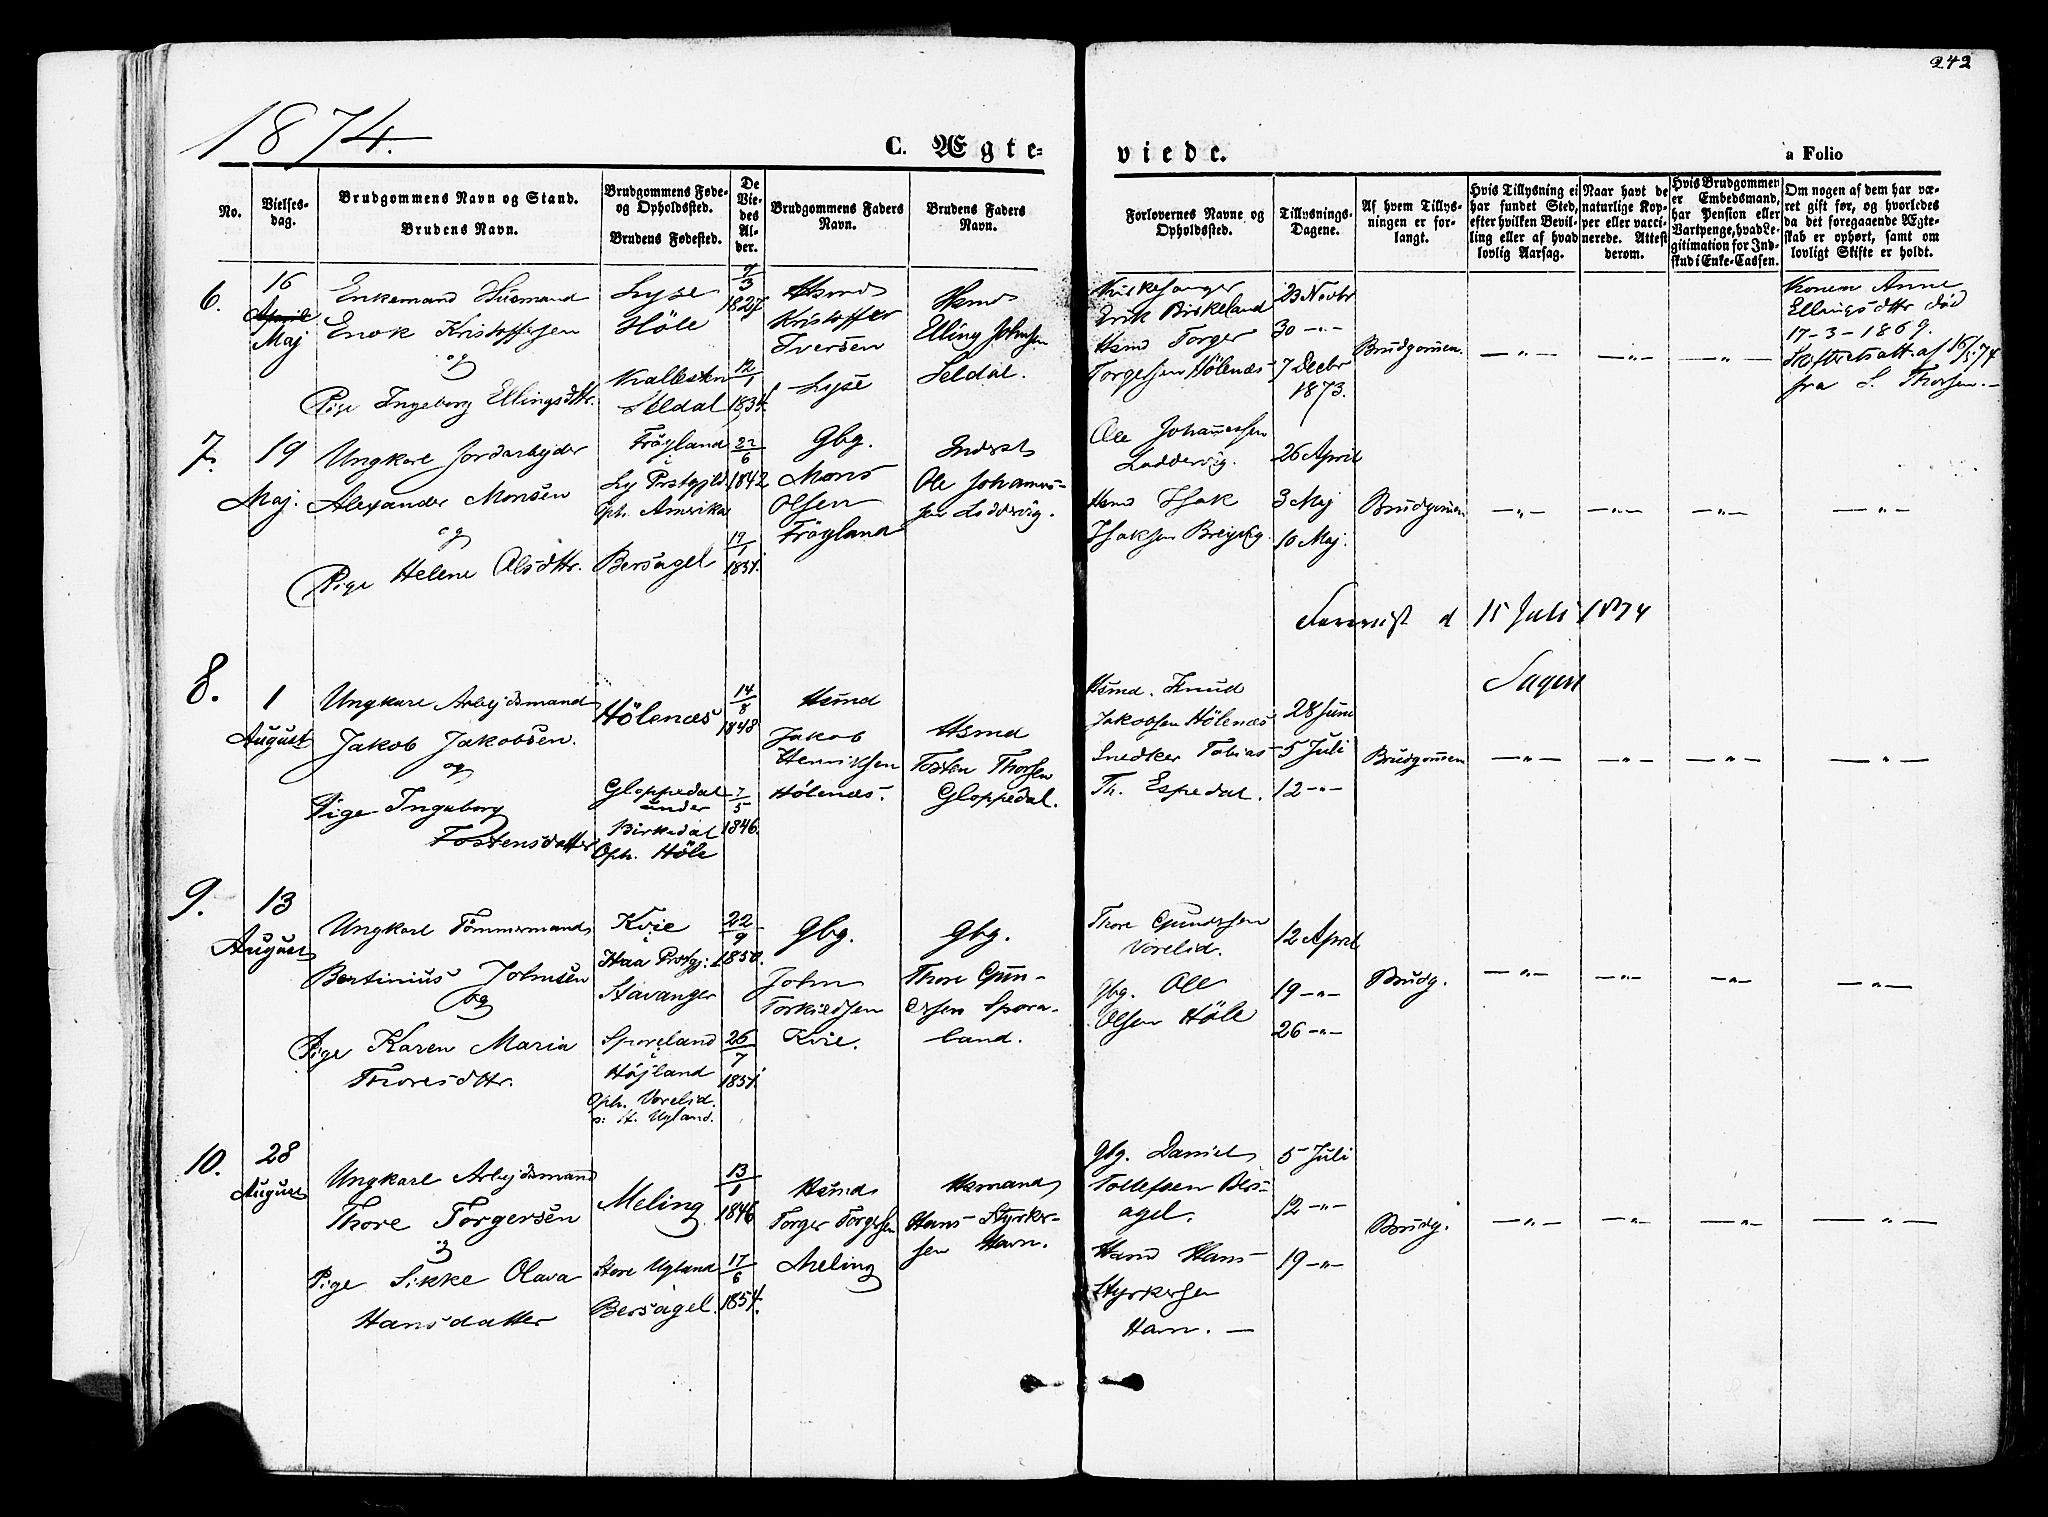 242
1874.
C. Ægte-
viede.
a Folio
No.
Vielses-
dag.
Brudgommens Navn og Stand.
Brudens Navn.
Brudgommens Føde-
og Opholdssted.
Brudens Fødested.
De
Vie-
des
Al-
der.
Brudgommens Faders
Navn.
Brudens Faders
Navn.
Forlovernes Navne og
Opholdssted.
Tillysnings-
Dagene.
Af hvem Tillys-
ningen er for-
langt.
Hvis Tillysning ei
har fundet Sted,
efter hvilken Bevil-
ling eller af hvad
lovlig Aarsag.
Naar havt de
naturlige Kop-
per eller vacci-
nerede. Attest
derom.
Hvis Brudgommen
er Embedsmand,
har Pension eller
Vartpenge, hvad Le-
gitimation for Ind-
skud i Enke-Cassen.
Om nogen af dem har væ-
ret gift før, og hvorledes
da det foregaaende Ægte-
skab er ophørt, samt om
lovligt Skifte er holdt.
6.
16
April
Maj
Enkemand Husmand
Enok Kristoffersen
og
Pige Ingeborg Ellingsdttr.
Lyse
Höle
Kallesten
Seldal
7/3
1827
12/1
1834.
Hsmd
Kristoffer
Iversen
Lyse
Hsmd
Elling Johnsen
Seldal.
Kirkesanger
Erik Birkeland
Hsmd Torger
Torgersen Hölenæs
23 Novbr
30 -"-
7 Decbr
1873.
Brudgommen.
-"- -"- -"-
Konen Anne
Ellingsdttr död
17-3-1869.
Skifteretsatt. af 15/5 74
fra S. Thorsen.-
7.
19
Maj.
Ungkarl Jordarbejder
Alexander Monsen
og
Pige Helene Olsdttr.
Fröyland
i
Ly Prstgjld
Oph. Amerika
Bersagel
22/6
1842
17/1
1851.
Gbg.
Mons
Olsen
Fröyland
Inderst
Ole Johannes-
sen Laddervig.
Ole Johannessen
Laddervig.
Hsmd Isak
Isaksen Breivig
26 April
3 Maj
10 Maj.
Brudgommen
-"- -"- -"- -"-
d 15 Juli 1874
8.
1
August
Ungkarl Arbejdsmand
Jakob Jakobsen.
og
Pige Ingeborg
Tostensdatter
Hölenæs
Gloppedal
under
Birkedal
Oph. Höle
14/8
1848
7/5
1846.
Hsmd
Jakob
Henriksen
Hölenæs.
Hsmd
Tosten Thorsen
Gloppedal.
Hsmd. Knud
Jakobsen Hölenæs
Snedker Tobias
Th. Espedal.
28 Juni
5 Juli
12 -"-
Brudgommen
-"- -"- -"- -"-
9.
13
August
Ungkarl Tömmermand
Bertinius Johnsen
og
Pige Karen Maria
Thoresdttr.
Kvie
i
Haa Prstgj:
Stavanger
Sporeland
i
Höjland
Oph. Vorelid.
p: st. Ugland.
22/9
1850.
26/7
1851.
Gbg.
John
Torkildsen
Kvie.
Gbg.
Thore Gun-
dersen Spora-
land.
Thore Gundersen
Vorelid.
Gbg. Ole
Olsen Höle
12 April
19 -"-
26 -"-
Brudg.
-"- -"- -"- -"-
10.
28
August
Ungkarl Arbejdsmand
Thore Torgersen
og
Pige Sikke Olava
Hansdatter
Meling
Store Ugland
Bersagel.
13/1
1846
17/6
1854.
Hsmd
Torger Torgersen
Meling
Hsmand
Hans Styrker-
sen Havn.
Gbg. Daniel
Tollefsen Bers-
agel.
Hsmd Hans
Styrkersen
Havn. -
5 Juli
12 -"-
19 -"-
Brudg.
-"- -"- -"- -"-